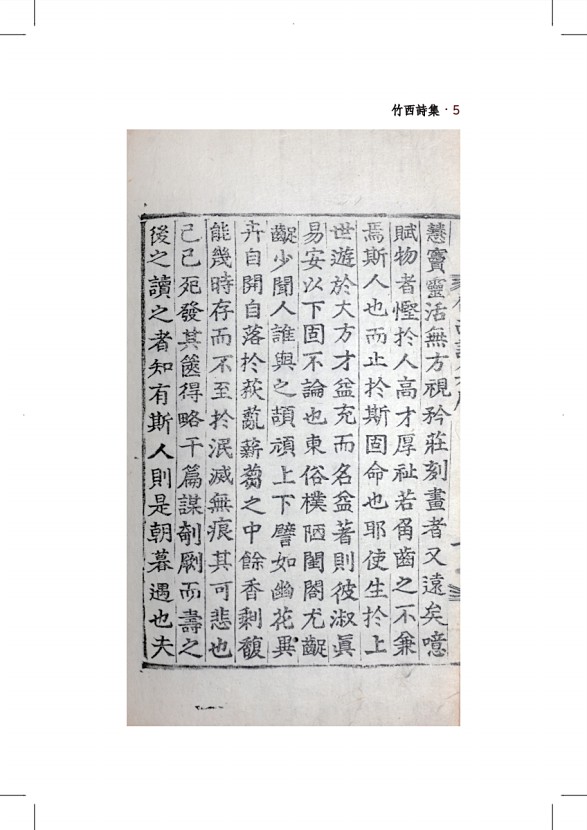 竹西詩集 · 5
慧竇靈活無方視矜莊刻畫者又遠矣噫
賦物者慳於人高才厚祉若角齒之不兼
焉斯人也而止於斯固命也耶使生於上
世遊於大方才益充而名益著則彼淑眞
易安以下固不論也東俗樸陋閨閤尤齪
齪少聞人誰與之頡頏上下譬如幽花異
卉自開自落於荻薍薪蒭之中餘香剩馥
能幾時存而不至於泯滅無痕其可悲也
已已死發其篋得略干篇謀剞劂而壽之
後之讀之者知有斯人則是朝暮遇也夫